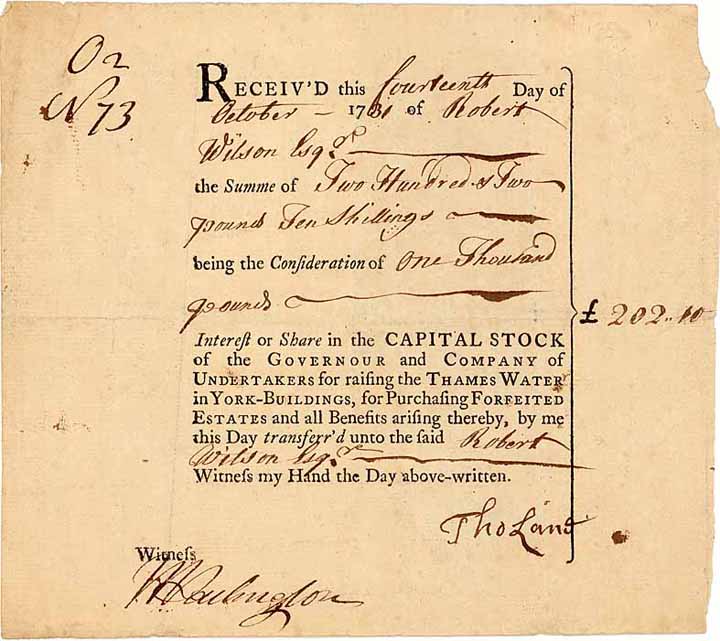 On
No 73
RECEIV'D this fourteenth Day of
October – 1731 of Robert
Wilson Esqr.
the Summe of Two Hundred & Two
pounds Ten Shillings
being the Conſideration of One Thousand
pounds
£ 202..10
Intereſt or Share in the CAPITAL STOCK
of the GOVERNOUR and COMPANY of
UNDERTAKERS for raiſing the THAMES WATER
in YORK-BUILDINGS, for Purchaſing FORFEITED
ESTATES and all Benefits ariſing thereby, by me
this Day transferr'd unto the ſaid Robert
Wilson Esqr.
Witneſs my Hand the Day above-written.
Tho Lane
Witneſs